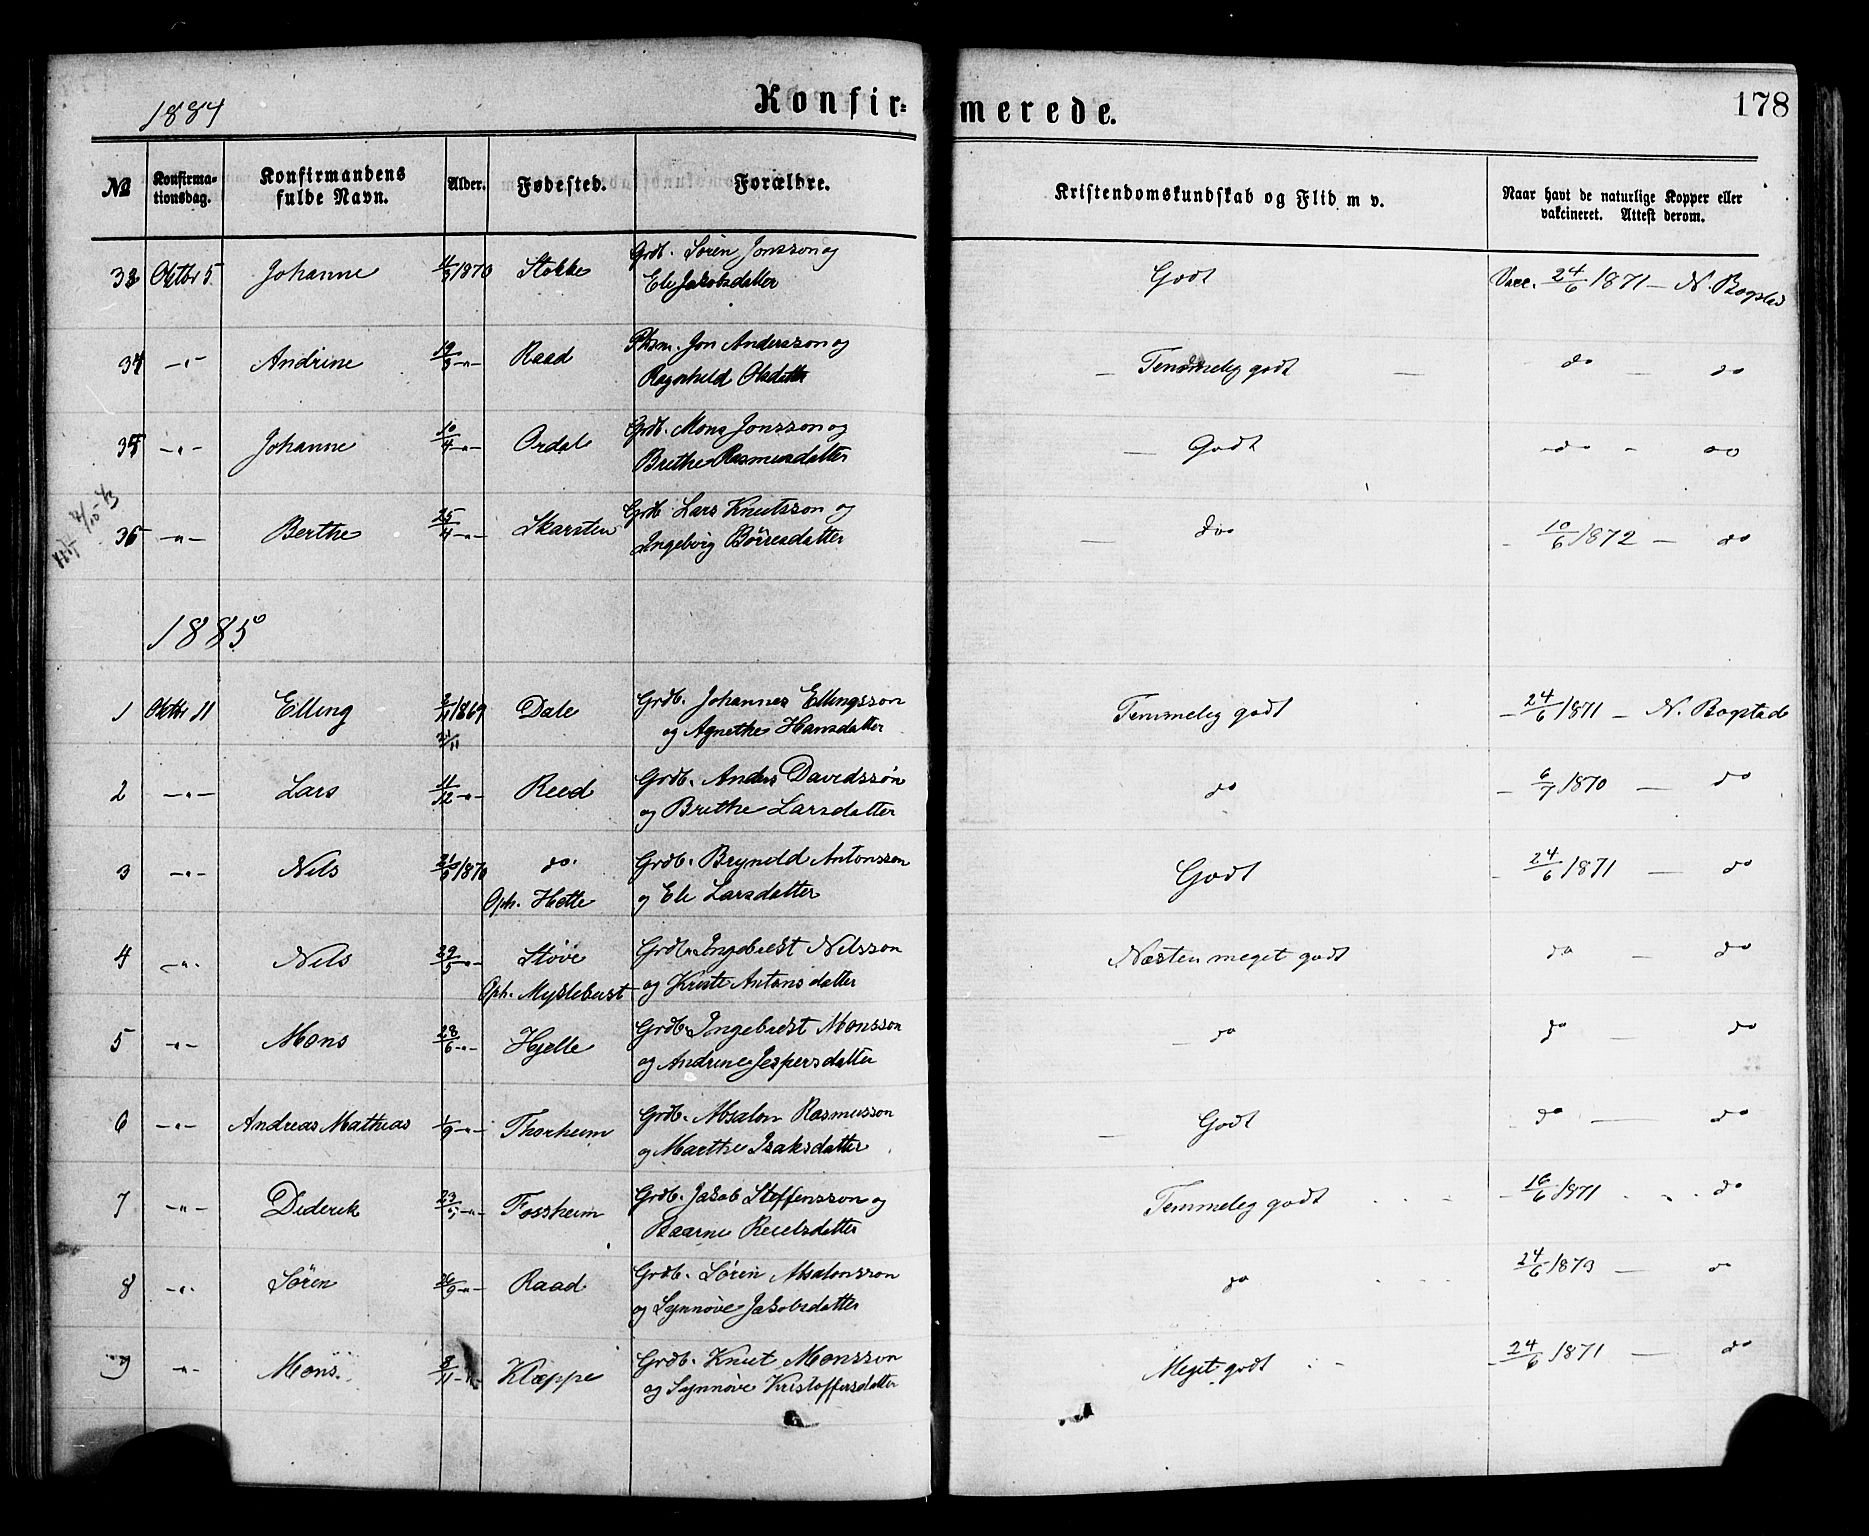 1884
Konfir=
merede.
178
№
Konfirma-
tionsdag.
Konfirmandens
fulde Navn.
Alder.
Fødested.
Forældre.
Kristendomskundskab og Flid m v.
Naar havt de naturlige Kopper eller
vakcineret. Attest derom.
33 Oktbr 5. Johanne 1870 Stokke Grdb. Søren Jonsson og
Eli Jakobsdatter
Godt Vacc. 24/6 1871 – N. Bogstad
34 -"- Andrine 19/3 -"- Raad Plsm. Jon Andersson og
Ragnhild Olsdatter
– Temmelig godt – do – do
35 -"- Johanne 10/4 -"- Ordal Grdb. Mons Jonsson og
Brithe Rasmusdatter
– Godt do - do
36 -"- Berthe 25/4 -"- Skarsten Grdb. Lars Knutsson og
Ingeborg Børresdatter
– do - 10/6 1872 – do
1885
1 Oktbr 11 Elling 1869 Dale Grdb. Johannes Ellingsson
21/11 og Agnethe Hansdatter
Temmelig godt - 24/6 1871 – N. Bogstad
2 -"- Lars 11/12 -"- Reed Grdb. Anders Davidssøn
og Brithe Larsdatter
do - 6/7 1870 – do
3 -"- Nils 21/3 1870 do. Grdb. Bryneld Antonsson
Oph. Hette og Eli Larsdatter
Godt - 24/6 1871 – do
4 -"- Nils 29/5 -"- Støve Grdb. Ingebrigt Nilsson
Oph. Myklebust og Kristi Antonsdatter
Næsten meget godt do – do
5 -"- Mons 28/6 -"- Hjelle Grdb. Ingebrigt Monsson
og Andrine Jespersdatter
– do do – do
6 -"- Andreas Mathias 1/9 -"- Thorheim Grdb. Absalon Rasmusson
og Marthe Isaksdatter
– Godt do – do
7 -"- Diderik 23/9 -"- Fossheim Grdb. Jakob Steffensson og
Baarni Reielsdatter
Temmelig godt - 16/6 1871 do
8 -"- Søren 26/9 -"- Raad Grdb. Søren Absalonsson
og Synnøve Jakobsdatter
do 24/6 1873 – do
9 -"- Mons 8/11 -"- Kleppe Grdb. Knut Monsson
og Synnøve Kristoffersdatter
Meget godt - 24/6 1871 – do